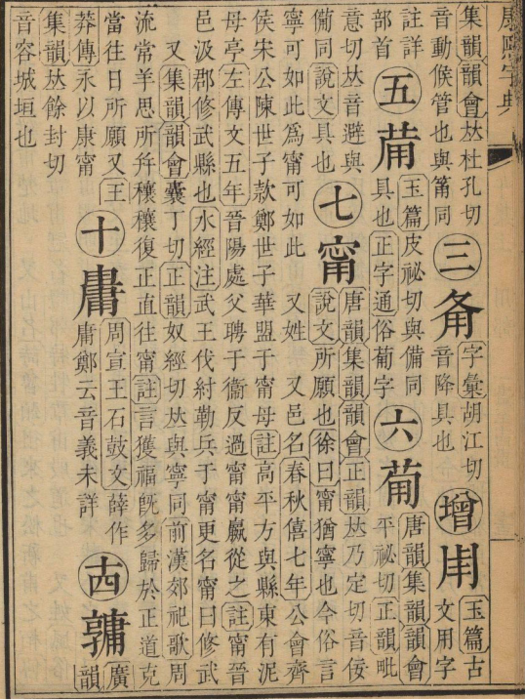 集韻韻會𠀤杜孔切
音動候管也與筩同
三
字彙胡江切
音降具也
增𤰃
玉篇古
文用字
註詳
部首
五𤰇
玉篇皮祕切與備同
具也正字通俗葡字
六葡
唐韻集韻韻會
平祕切正韻毗
意切𠀤音避與
同說文具也
七甯
唐韻集韻韻會正韻𠀤乃定切音佞
說文所願也徐曰甯猶寧也今俗言
寧可如此爲甯可如此 又姓 又邑名春秋僖七年公會齊
侯宋公陳世子款鄭世子華盟于甯母註高平方與縣東有泥
母亭左傳文五年晉陽處父聘于衞反過甯甯嬴從之註甯晉
邑汲郡修武縣也水經注武王伐紂勒兵于甯更名甯曰修武
又集韻韻會囊丁切正韻奴經切𠀤與寧同前漢郊祀歌周
流常羊思所幷穰穰復正直往甯註言獲福旣多歸於正道克
當往日所願又王
莽傳永以康甯
十
周宣王石鼓文薛作
庸鄭云音義未詳
十四
廣
韻
集韻𠀤餘封切
音容城垣也